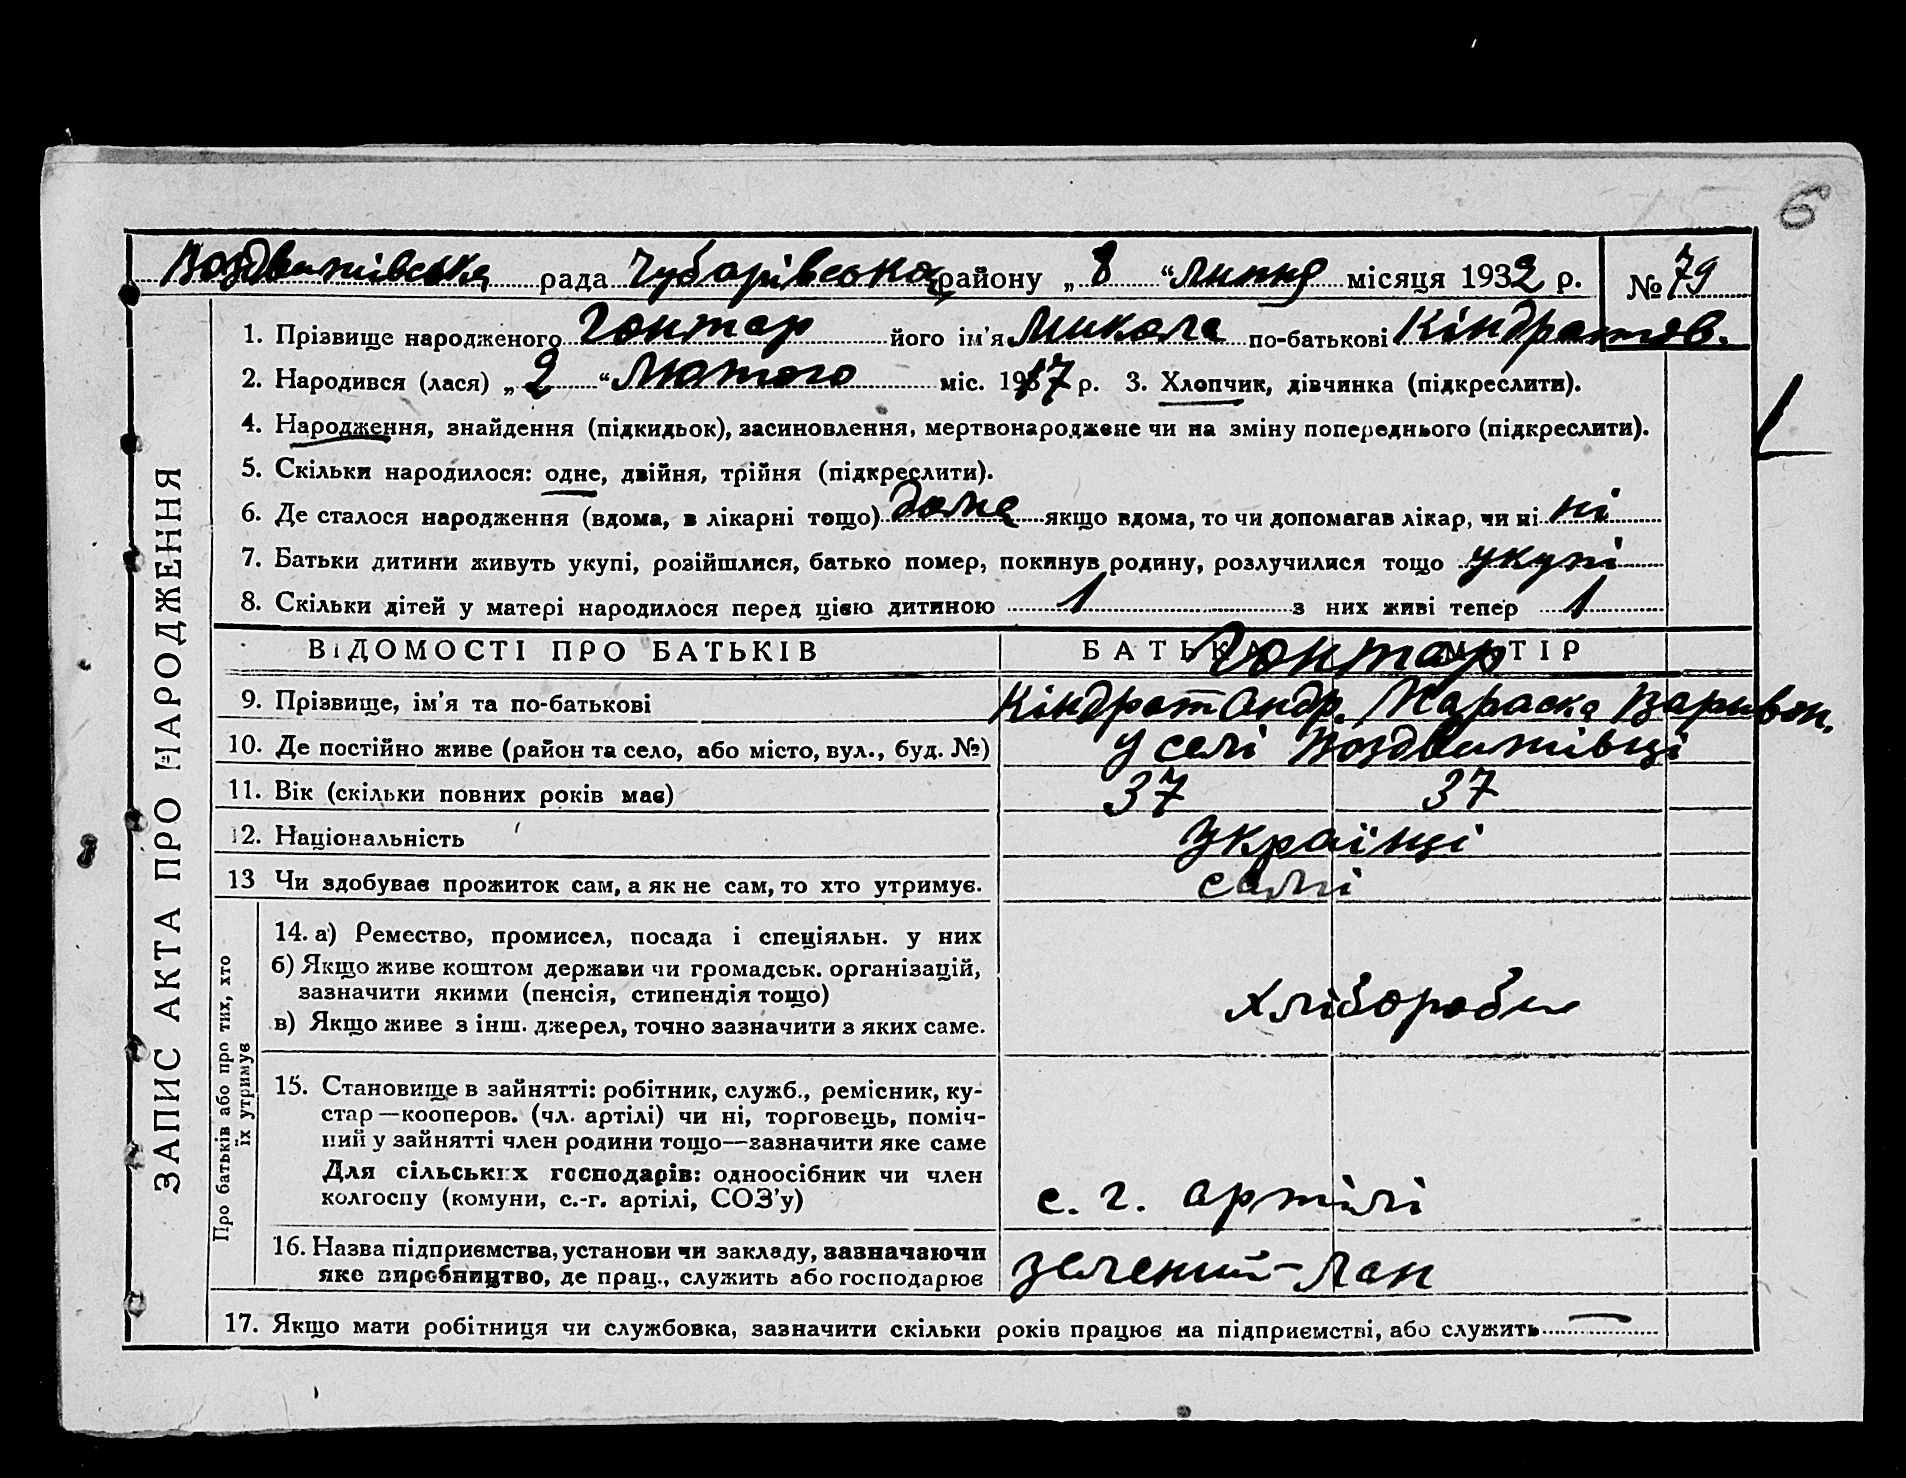 6
Воздвижівська рада Чубарівського району „ 8 “ липня місяця 1932 р. № 79
1. Прізвище народженого Гонтар його ім’я Микола по-батькові Кіндратов.
2. Народився (лася) „ 2 “ Лютого міс. 1917 р. 3. Хлопчик, дівчинка (підкреслити).
4. Народження, знайдення (підкидьок), засиновлення, мертвонароджене чи на зміну попереднього (підкреслити).
5. Скільки народилося: одне, двійня, трійня (підкреслити).
6. Де сталося народження (вдома, в лікарні тощо) дома якщо вдома, то чи допомагав лікар, чи ні ні
7. Батьки дитини живуть укупі, розійшлися, батько помер, покинув родину, розлучилися тощо укупі
8. Скільки дітей у матері народилося перед цією дитиною 1 з них живі тепер 1
ВІДОМОСТІ ПРО БАТЬКІВ БАТЬКА МАТІР
Гонтар
9. Прізвище, ім’я та по-батькові Кіндрат Андр. Параска Варивон.
10. Де постійно живе (район та село, або місто, вул., буд. №) у селі Воздвижівці
11. Вік (скільки повних років має) 37 37
12. Національність Українці
13 Чи здобуває прожиток сам, а як не сам, то хто утримує. самі
Про батьків або про тих, хто їх утримує
14. а) Ремество, промисел, посада і спеціяльн. у них
б) Якщо живе коштом держави чи громадськ. організацій,
зазначити якими (пенсія, стипендія тощо) хлібороби
в) Якщо живе з інш. джерел, точно зазначити з яких саме.
15. Становище в зайнятті: робітник, служб., ремісник, ку-
стар—кооперов. (чл. артілі) чи ні, торговець, поміч-
ний у зайнятті член родини тощо—зазначити яке саме
Для сільських господарів: одноосібник чи член
колгоспу (комуни, с.-г. артілі, СОЗ’у) с. г. артілі
16. Назва підприємства, установи чи закладу, зазначаючи
яке виробництво, де прац., служить або господарює зелений-Лан
17. Якщо мати робітниця чи службовка, зазначити скільки років працює на підприємстві, або служить —
ЗАПИС АКТА ПРО НАРОДЖЕННЯ